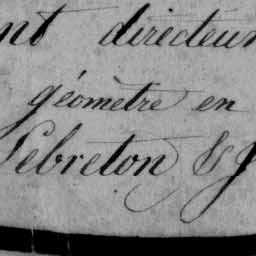 nt directeur
géomètre en
Lebreton & J